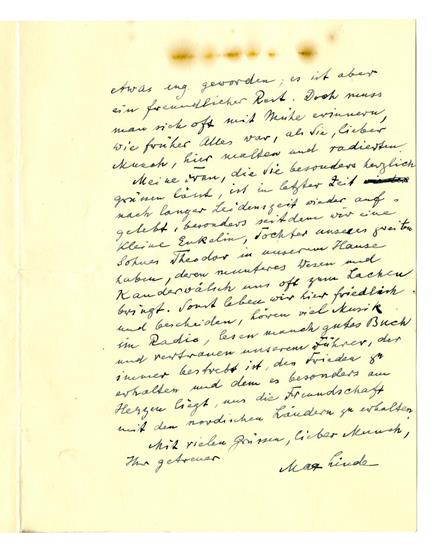 etwas eng geworden; es ist aber
ein freundlicher Rest. Doch muss
man sich oft mit Mühe erinnern,
wie früher Alles war, als Sie, lieber
Munch, hier malten und radierten.
Meine Frau, die Sie besonders herzlich
grüssen lässt, ist in letzter Zeit
nach langer Leidenszeit wieder auf-
gelebt, besonders seitdem wir eine
kleine Enkelin, Tochter unseres zweiten
Sohnes Theodor in unserem Hause
haben, deren munteres Wesen und
Kauderwälsch uns oft zum Lachen
bringt. Sonst leben wir hier friedlich
und bescheiden, hören viel Musik
im Radio, lesen manch gutes Buch
und vertrauen unserem Führer, der
immer bestrebt ist, den Frieden zu
erhalten und dem es besonders am
Herzen liegt, uns die Freundschaft
mit den nordischen Ländern zu erhalten.
Mit vielen Grüssen, lieber Munch,
Ihr getreuer
Max Linde